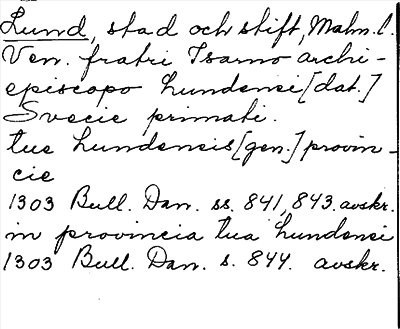 Lund, stad och stift, Malm. l.
Ven. fratri Isarno archi-
episcopo Lundensi [dat.]
Svecie primati.
tue Lundensis [gen.] provin-
cie
1303 Bull. Dan. ss. 841, 843. avskr.
in provincia tua Lundensi
1303 Bull. Dan. s. 844. avskr.